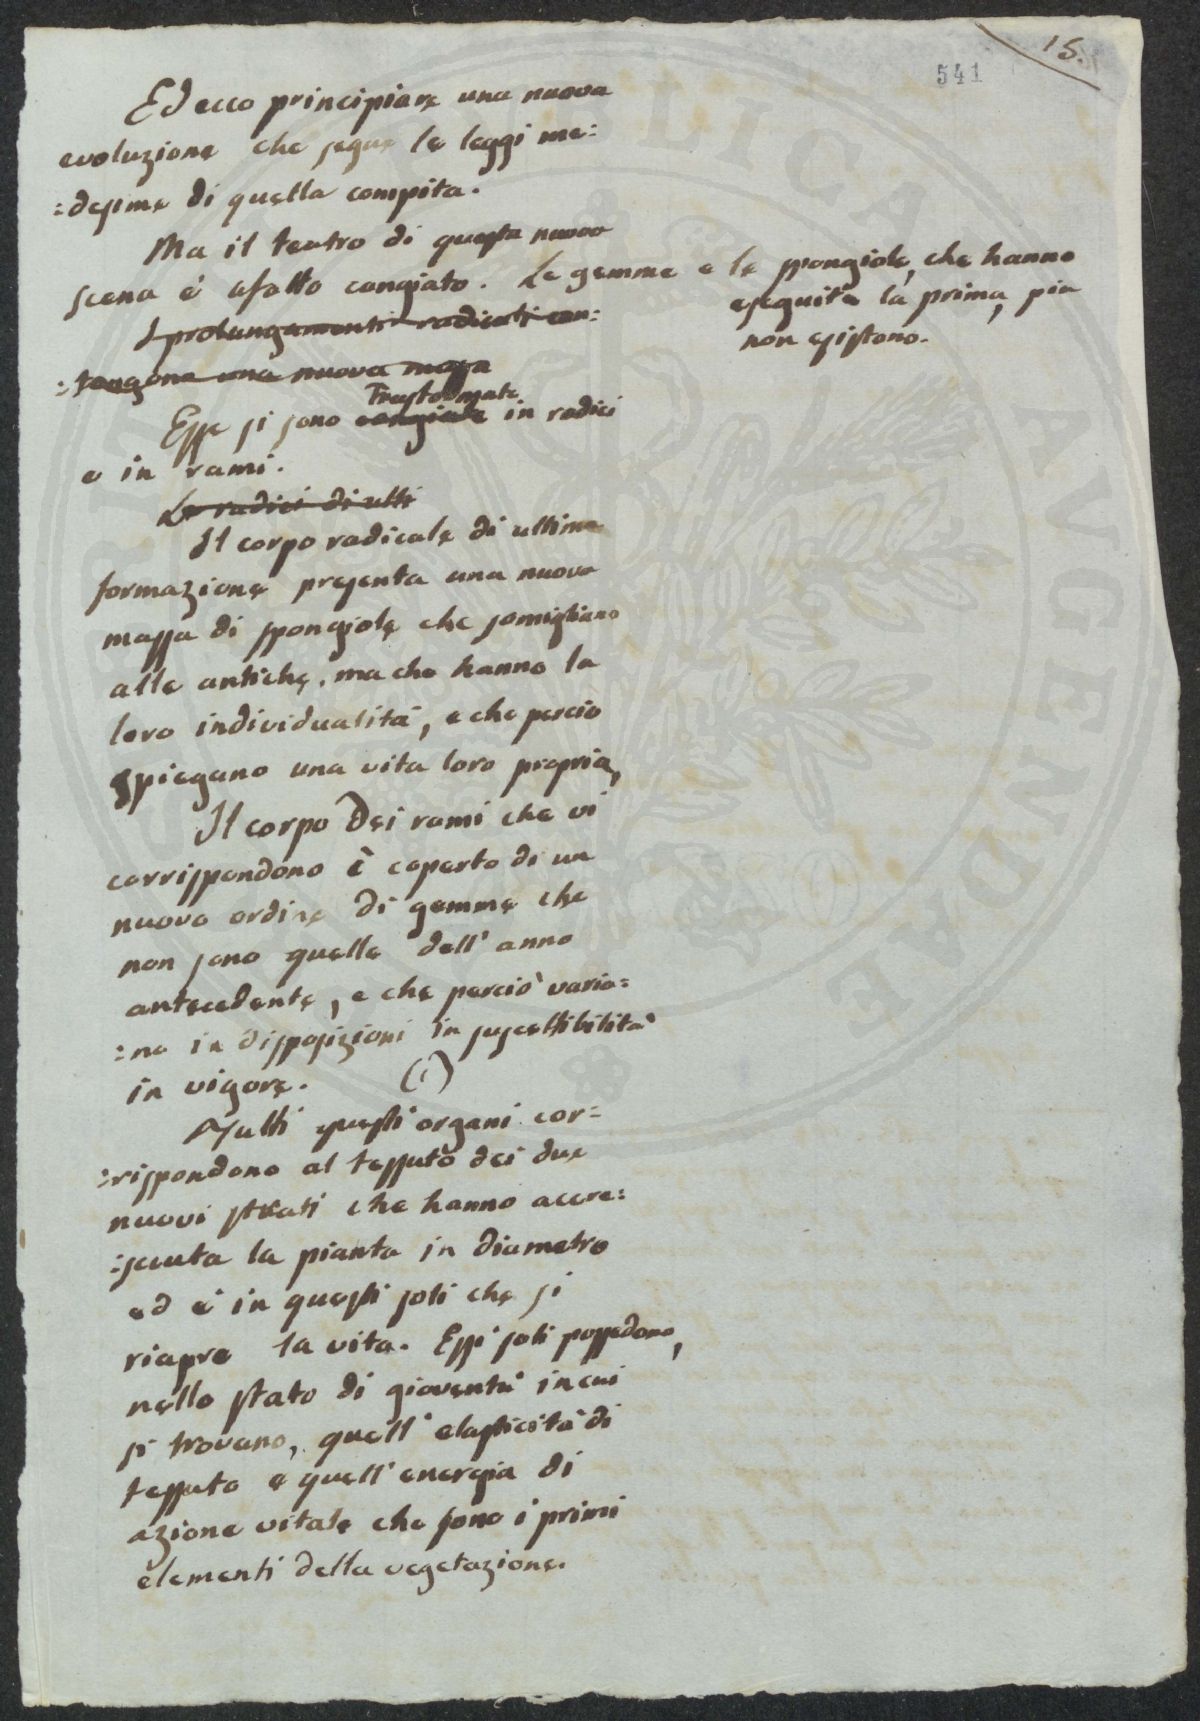 15.
541
Ed ecco principiare una nuova
evoluzione che segue le leggi me=
=desime di quella compita.
Ma il teatro di questa nuova
scena è afatto cangiato. Le gemme e le spongiole, che hanno
eseguita la prima, più
non esistono.
I prolungamenti radicati con=
=tengono una nuova massa
Trasformate
Esse si sono cangiate in radici
e in rami.
Le radici di ulti
Il corpo radicale di ultima
formazione presenta una nuova
massa di spongiole che somigliano
alle antiche, ma che hanno la
loro individualità, e che perciò
spiegano una vita loro propria,
Il corpo dei rami che vi
corrispondono è coperto di un
nuovo ordine di gemme che
non sono quelle dell'anno
antecedente, e che perciò varia=
=no in disposizioni in suscettibilità
in vigore. (1)
Tutti questi organi cor=
=rispondono al tessuto dei due
nuovi strati che hanno accre=
=sciuta la pianta in diametro
ed è in questi soli che si
riapre la vita. Essi soli possedono,
nello stato di gioventù in cui
si trovano, quell'elasticità di
tessuto e quell'energia di
azione vitale che sono i primi
elementi della vegetazione.